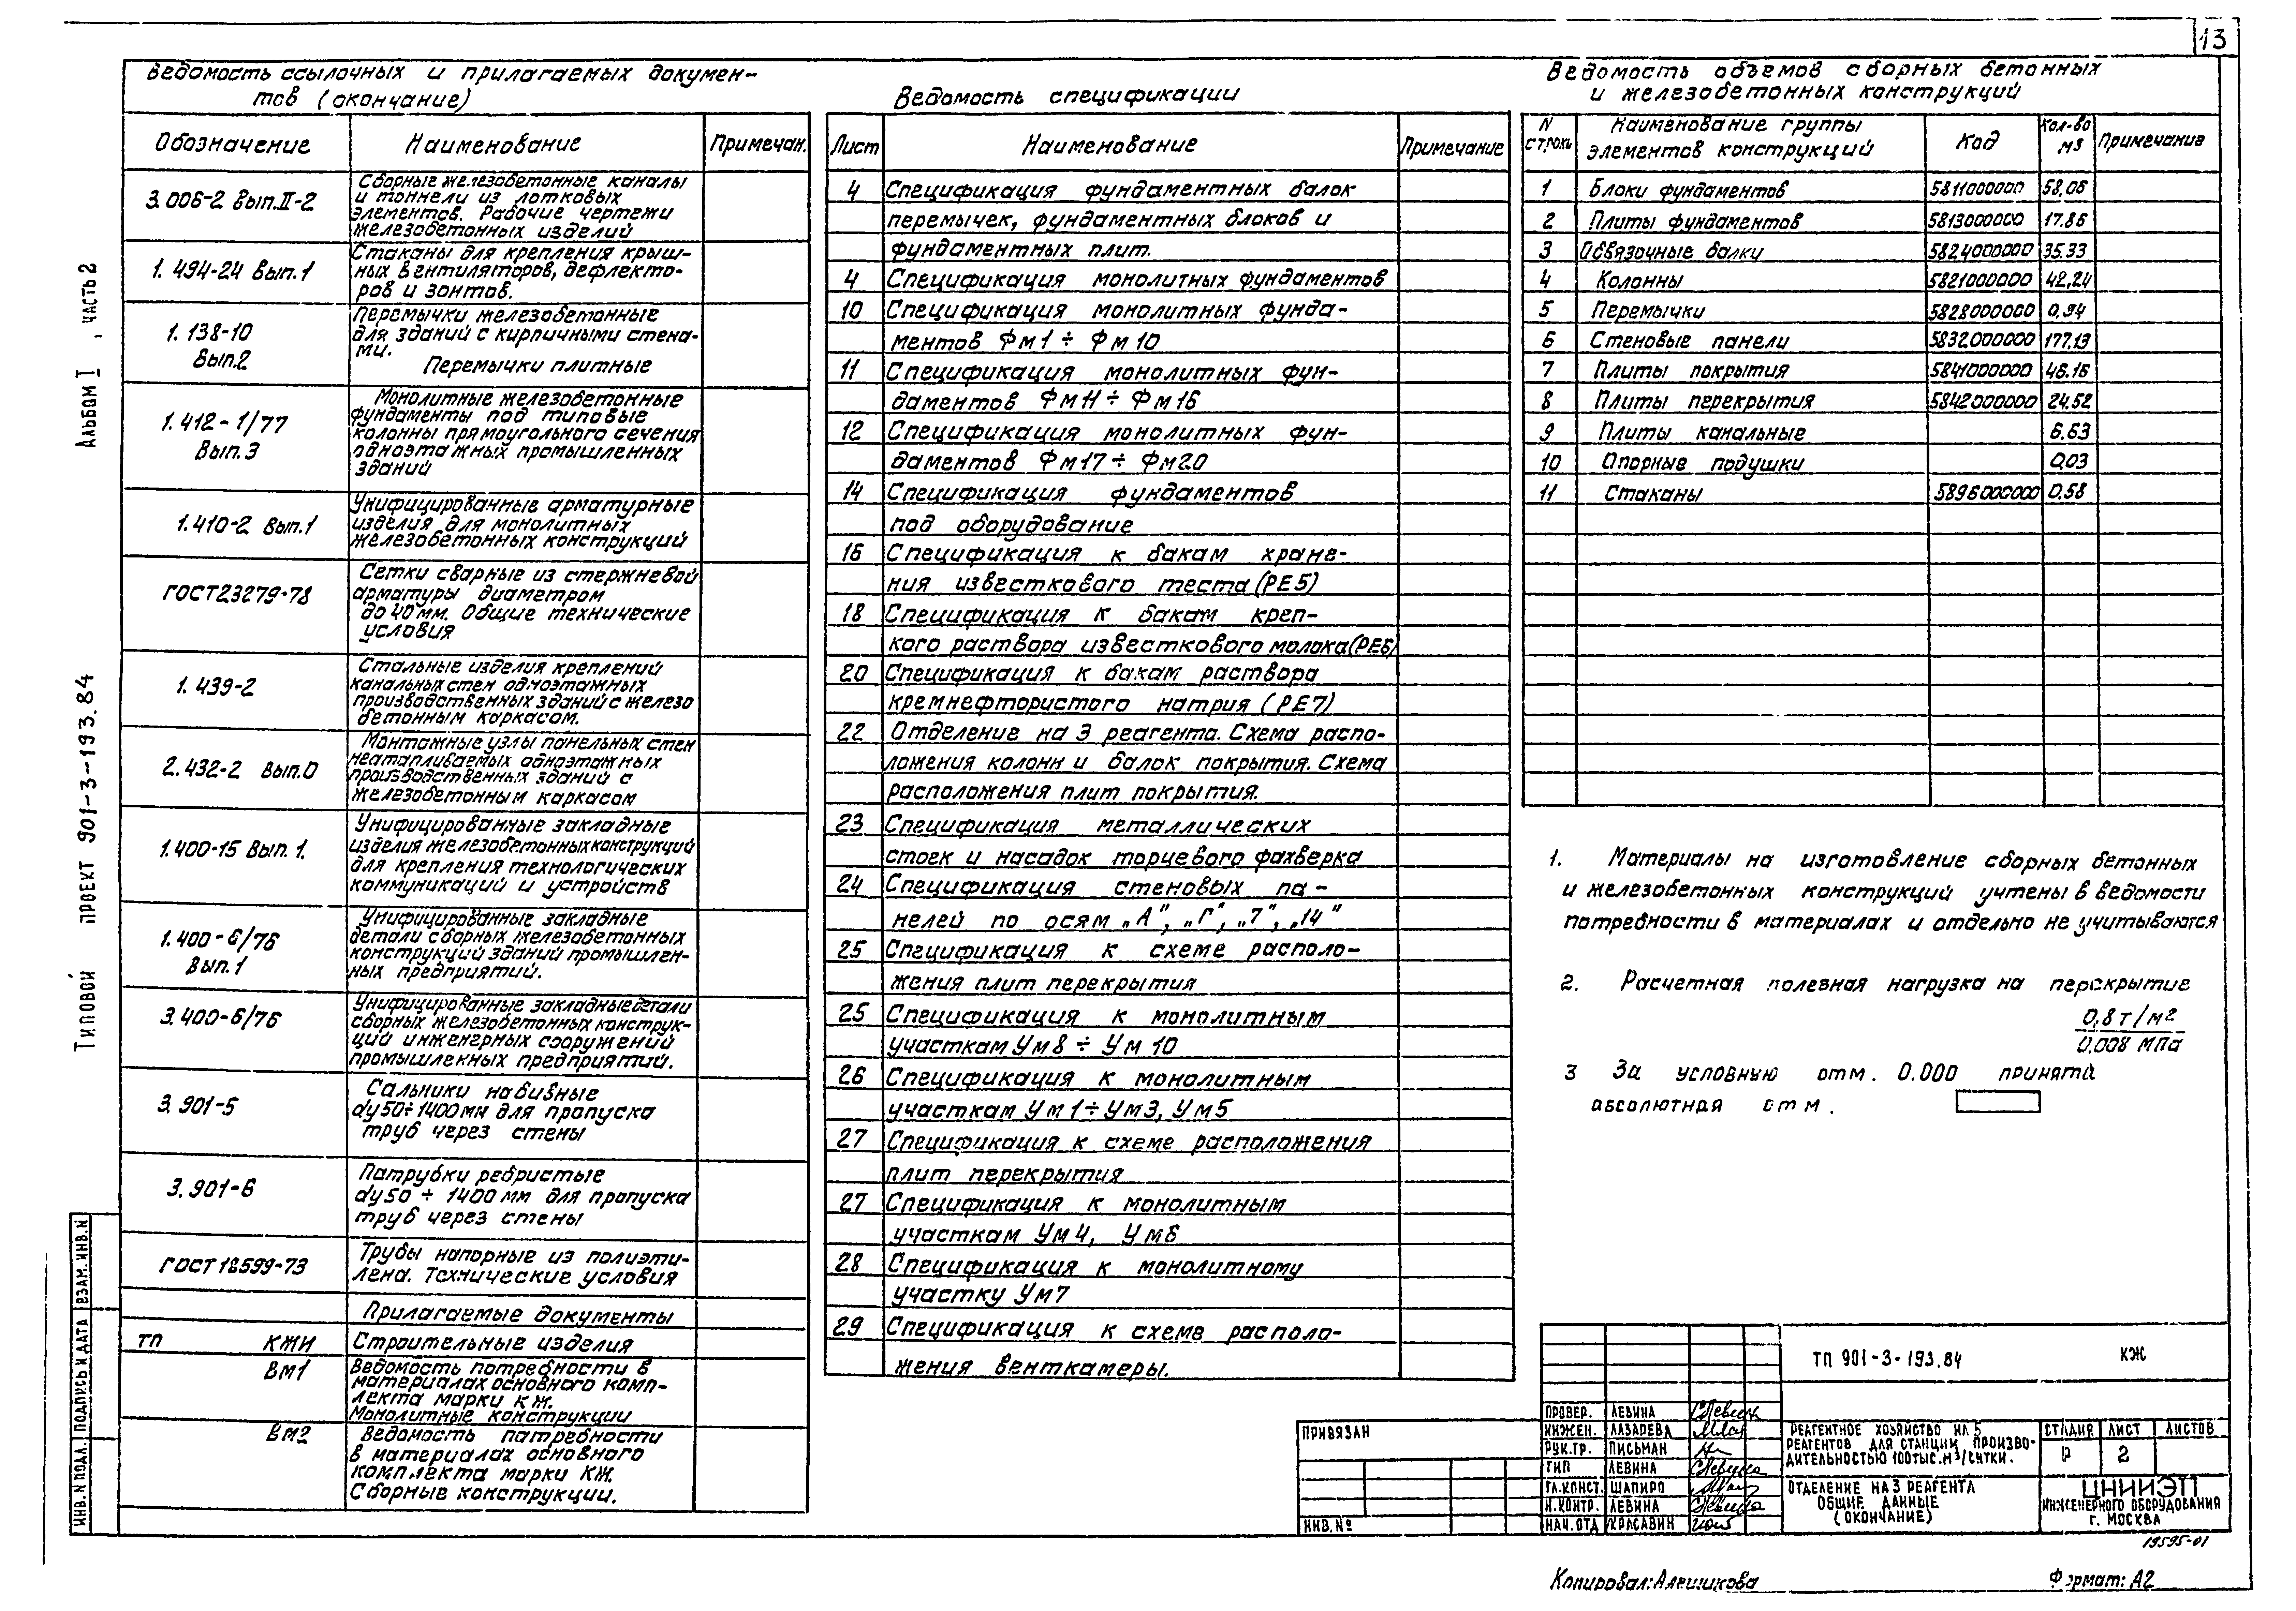 13
Ведомость ссылочных и прилагаемых докумен-
тов (окончание)
Обозначение
Наименование
Примечан.
3.006-2 Вып.II-2
Сборные железобетонные каналы
и тоннели из лотковых
элементов. Рабочие чертежи
железобетонных изделий
1. 494-24 Вып.1
Стаканы для крепления крыш-
ных вентиляторов, дефлекто-
ров и зонтов.
1. 138-10
Вып.2
Перемычки железобетонные
для зданий с кирпичными стена-
ми.
Перемычки плитные
1. 412 - 1/77
Вып.3
Монолитные железобетонные
фундаменты под типовые
колонны прямоугольного сечения
одноэтажных промышленных
зданий
1.410-2 Вып.1
Унифицированные арматурные
изделия для монолитных
железобетонных конструкций
ГОСТ23279-78
Сетки сварные из стержневой
арматуры диаметром
до 40мм. Общие технические
условия
1. 439-2
Стальные изделия креплений
канальных стен одноэтажных
производственных зданий с железо
бетонным каркасом.
2.432-2 Вып.0
Монтажные узлы панельных стен
неатапливаемых одноэтажных
производственных зданий с
железобетонным каркасом
1.400-15 Вып. 1.
Унифицированные закладные
изделия железобетонных конструкций
для крепления технологических
коммуникаций и устройств
1.400 - 6/76
Вып.1
Унифицированные закладные
детали сборных железобетонных
конструкций зданий промышлен-
ных предприятий.
3.400-6/76
Унифицированные закладные детали
сборных железобетонных конструк-
ций инженерных сооружений
промышленных предприятий.
3.901-5
Сальники набивные
dy50÷1400мм для пропуска
труб через стены
3.901-6
Патрубки ребристые
dy50 ÷ 1400 мм для пропуска
труб через стены
ГОСТ 18599-73
Трубы напорные из полиэти-
лена. Технические условия
Прилагаемые документы
ТП КЖИ
Строительные изделия
ВМ1
Ведомость потребности в
материалах основного комп-
лекта марки КЖ.
Монолитные конструкции
ВМ2
Ведомость патребности
в материалах основного
комплекта марки КЖ.
Сборные конструкции.
Ведомость спецификации
Лист
Наименование
Примечание
4 Спецификация фундаментных балок
перемычек, фундаментных блоков и
фундаментных плит.
4 Спецификация монолитных фундаментов
10 Спецификация монолитных фунда-
ментов Фм1 ÷ Фм 10
11 Спецификация монолитных фун-
даментов Фм11 ÷ Фм16
12 Спецификация монолитных фун-
даментов Фм17 ÷ Фм20
14 Спецификация фундаментов
под оборудование
16 Спецификация к бакам хране-
ния известкового теста (РЕ5)
18 Спецификация к бакам креп-
кого раствора известкового молока(РЕ6)
20 Спецификация к бакам раствора
кремнефтористого натрия (РЕ7)
22 Отделение на 3 реагента. Схема распо-
ложения колонн и балок покрытия. Схема
расположения плит покрытия.
23 Спецификация металлических
стоек и насадок торцевого фахверка
24 Спецификация стеновых па -
нелей по осям „А", „Г", „7", „14"
25 Спецификация к схеме располо-
жения плит перекрытия
25 Спецификация к монолитным
участкам Ум8 ÷ Ум 10
26 Спецификация к монолитным
участкам Ум1 ÷ Ум3, Ум5
27 Спецификация к схеме расположения
плит перекрытия
27 Спецификация к монолитным
участкам Ум4, Ум6
28 Спецификация к монолитному
участку Ум7
29 Спецификация к схеме располо-
жения венткамеры.
Ведомость объемов сборных бетонных
и железобетонных конструкций
N строки
Наименование группы
элементов конструкций
Код
Кол-во м3
Примечание
1 Блоки фундаментов 5811000000 58,06
2 Плиты фундаментов 5813000000 17.86
3 Обвязочные балки 5824000000 35.33
4 Колонны 5821000000 42,24
5 Перемычки 5828000000 0,94
6 Стеновые панели 5832000000 177.13
7 Плиты покрытия 5841000000 46.16
8 Плиты перекрытия 5842000000 24.52
9 Плиты канальные 6.63
10 Опорные подушки 0,03
11 Стаканы 5896000000 0.58
1. Материалы на изготовление сборных бетонных
и железобетонных конструкций учтены в ведомости
потребности в материалах и отдельно не учитываются
2. Расчетная полезная нагрузка на перекрытие
0,8 т/м2
0,008 МПа
3 За условную отм. 0.000 принята
абсолютная отм.
Альбом I , часть 2
Типовой проект 901-3-193.84
ИНВ. N ПОДЛ. ПОДПИСЬ И ДАТА ВЗАМ. ИНВ. N
ПРИВЯЗАН
ИНВ. №
ТП 901-3-193.84 КЖ
ПРОВЕР. ЛЕВИНА
ИНЖЕН. ЛАЗАРЕВА
РУК.ГР. ПИСЬМАН
ГИП ЛЕВИНА
ГЛ.КОНСТ. ШАПИРО
Н.КОНТР. ЛЕВИНА
НАЧ.ОТД КРАСАВИН
РЕАГЕНТНОЕ ХОЗЯЙСТВО НА 5
РЕАГЕНТОВ ДЛЯ СТАНЦИИ ПРОИЗВО-
ДИТЕЛЬНОСТЬЮ 100ТЫС.М3/СУТКИ.
СТАДИЯ ЛИСТ ЛИСТОВ
Р 2
ОТДЕЛЕНИЕ НА 3 РЕАГЕНТА
ОБЩИЕ ДАННЫЕ
(ОКОНЧАНИЕ)
ЦНИИЭП
ИНЖЕНЕРНОГО ОБОРУДОВАНИЯ
г. МОСКВА
19595-01
Копировал: Алешикова
Формат: А2